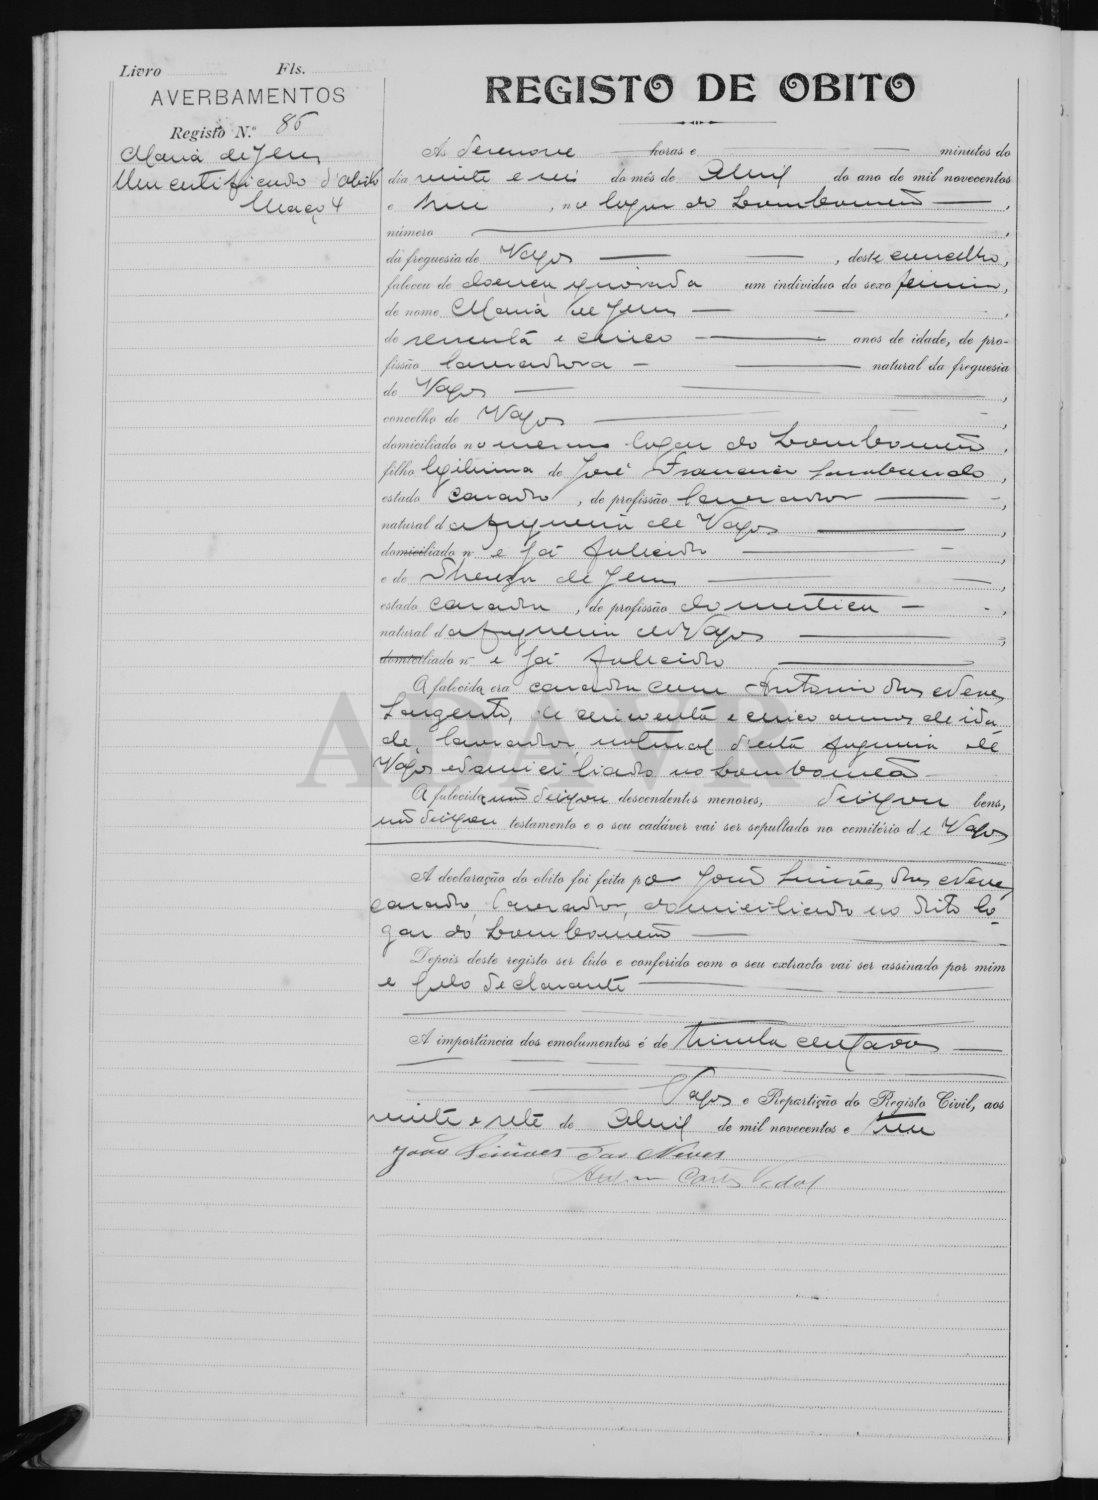 Livro Fls.
AVERBAMENTOS
Registo N.º 86
Maria de Jesus
Um certificado d'obito
Março 4
REGISTO DE OBITO
Ás dezenove horas e minutos do
dia vinte e seis do mês de Abril do ano de mil novecentos
e treze, no logar do Lombomeão,
número
da freguesia de Vagos, deste concelho,
faleceu de doença ignorada um individuo do sexo feminino,
de nome Maria de Jesus
de sessenta e cinco anos de idade, de pro-
fissão lavradora natural da freguesia
de Vagos,
concelho de Vagos,
domiciliado no mesmo logar do Lombomeão,
filho legitima de José Francisco
estado casado, de profissão lavrador,
natural da freguesia de Vagos,
domiciliado n e já falecido
e de Thereza de Jesus,
estado casada, de profissão domestica,
natural da freguesia de Vagos,
domiciliado n e já falecida
A falecida era casada com Antonio das Neves
Sargento, de cincoenta e cinco annos de ida
de, lavrador, natural d'esta freguesia de
Vagos e domiciliado no Lombomeão
A falecida não deixou descendentes menores, deixou bens,
não deixou testamento e o seu cadáver vai ser sepultado no cemitério de Vagos
A declaração do obito foi feita por João Simões das Neves,
casado, lavrador, domiciliado no dito lo-
gar do Lombomeão
Depois deste registo ser lido e conferido com o seu extracto vai ser assinado por mim
e pelo declarante
A importância dos emolumentos é de trinta centavos
Vagos e Repartição do Registo Civil, aos
vinte e sete de Abril de mil novecentos e treze
João Simões das Neves
Vidal
ADAVR